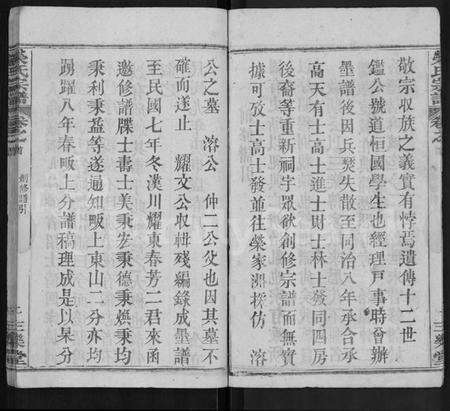 敬宗收族之義實有悖焉遺傳十二世
鑑公號道恒國學生也經理戶事時曾辦
墨譜後因兵燹失散至同治八年承合承
高天有士高士進士財士林士發同四房
後裔等重新祠宇眾欲創修宗譜而無實
據可攷士高士發並往榮家洲採仿　溶
公之墓　溶公　仲二公攷也因其墓不
確而遂止　耀文公収輯殘編錄成墨譜
至民國七年冬漢川耀東春芳二君來函
邀修譜牒士壽士美秉宏秉德秉煥秉均
秉利秉益等遂通知畈上東山二分亦均
踴躍八年春畈上分譜稿理成是以杲分
榮氏宗譜
卷之首
創修譜引
三樂堂